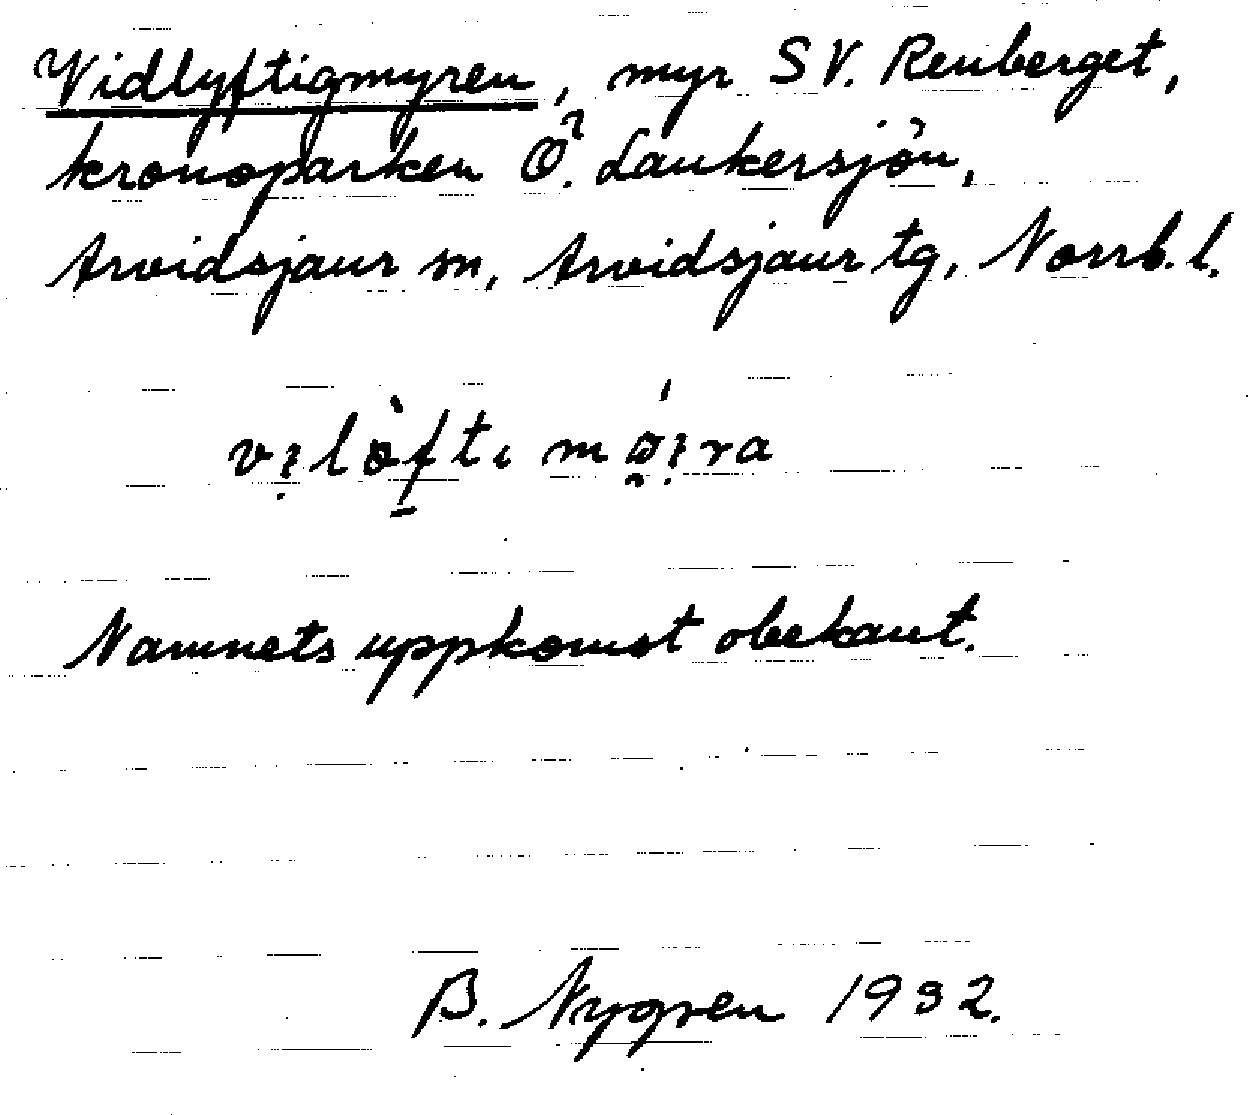 Vidlyftigmyren, myr SV. Renberget,
kronoparken Ö. Laukersjön,
Arvidsjaur sn, Arvidsjaur tg, Norrb. l.
Namnets uppkomst obekant.
B. Nygren 1932.